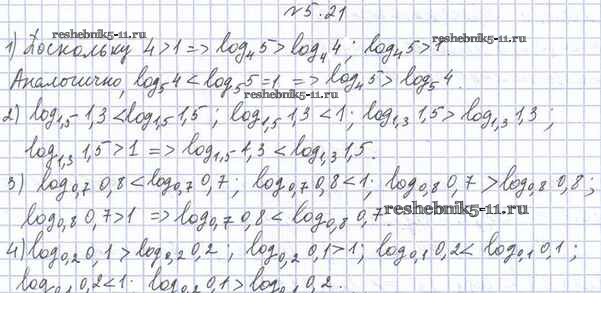 №5.21
reshebnik5-11.ru
1) Поскольку 4>1 => log₄5 > log₄4; log₄5>1.
Аналогично, log₅4 < log₅5=1 => log₄5 > log₅4.
reshebnik5-11.ru
2) log₁,₅1,3 < log₁,₅1,5; log₁,₅1,3 < 1; log₁,₃1,5 > log₁,₃1,3;
log₁,₃1,5 > 1 => log₁,₅1,3 < log₁,₃1,5.
3) log₀,₇0,8 < log₀,₇0,7; log₀,₇0,8 < 1; log₀,₈0,7 > log₀,₈0,8;
log₀,₈0,7 > 1 => log₀,₇0,8 < log₀,₈0,7.
reshebnik5-11.ru
4) log₀,₂0,1 > log₀,₂0,2; log₀,₂0,1 > 1; log₀,₁0,2 < log₀,₁0,1;
log₀,₁0,2 < 1. log₀,₂0,1 > log₀,₁0,2.